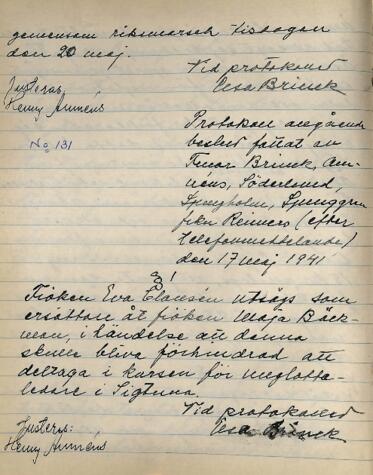 gemensam riksmarsch tisdagen
den 20 maj.
Vid protokollet
Elsa Brinck
Justeras
Henny Arméns
No 131
Protokoll angående
beslut fattat av
Fruar Brinck,
Söderlund,
Ljungholm, Ljunggren
fröken Reimers (efter
telefonmeddelande)
den 17 maj 1941
§ 1
Fröken Eva Clausén utsågs som
ersättare åt fröken Maja Bäck-
man, i händelse att denna
skulle bliva förhindrad att
deltaga i kursen för
ledare i Sigtuna.
Vid protokollet
Elsa Brinck
Justeras:
Henny Arméns